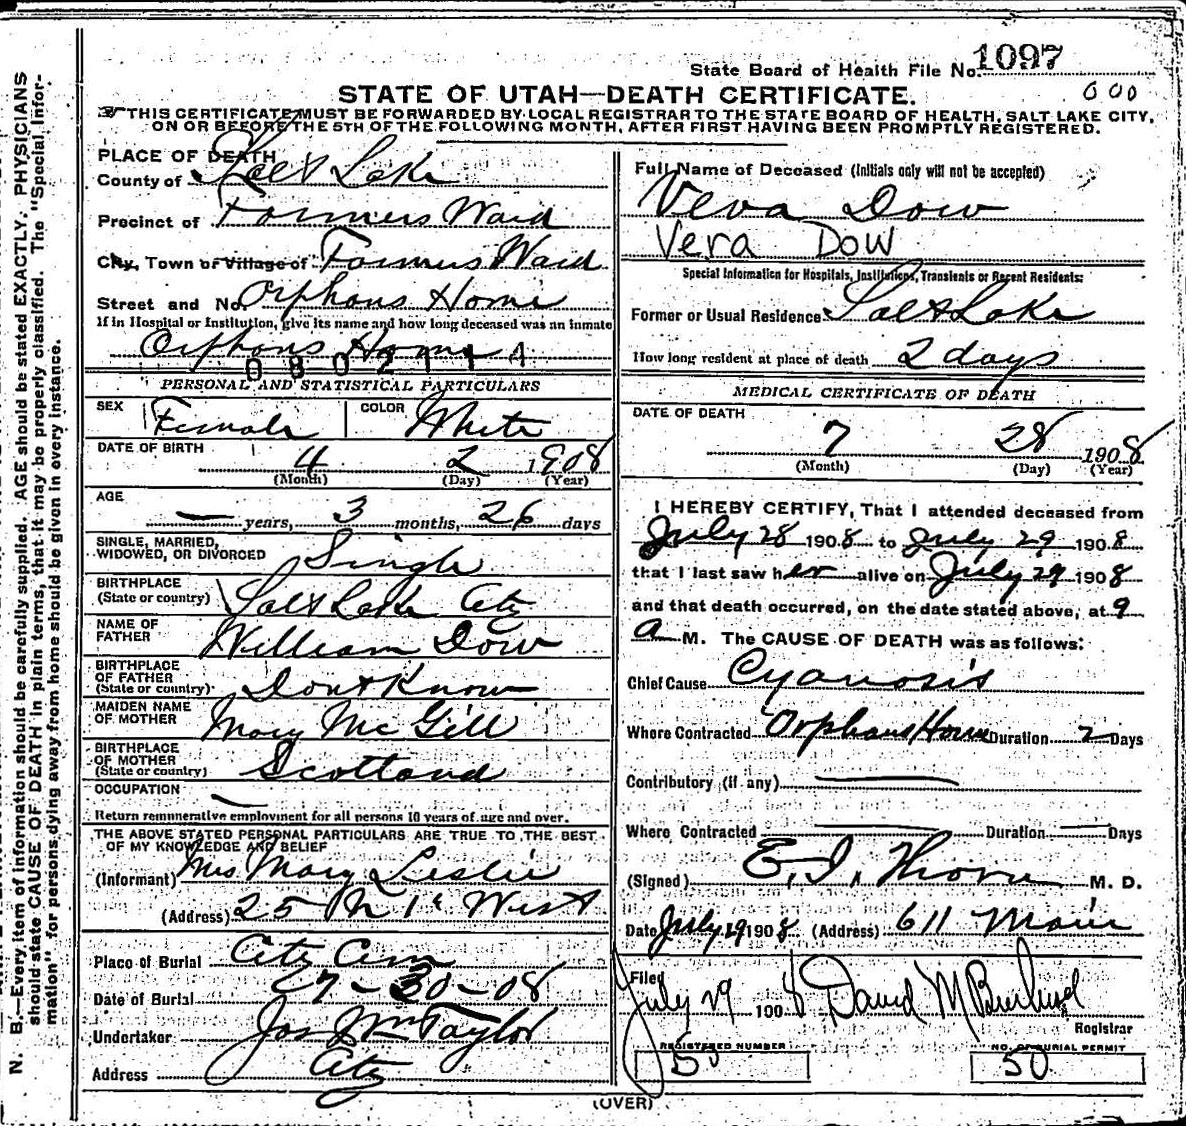 State Board of Health File No. 1097
000
STATE OF UTAH—DEATH CERTIFICATE.
THIS CERTIFICATE MUST BE FORWARDED BY LOCAL REGISTRAR TO THE STATE BOARD OF HEALTH, SALT LAKE CITY,
ON OR BEFORE THE 5TH OF THE FOLLOWING MONTH, AFTER FIRST HAVING BEEN PROMPTLY REGISTERED.
PLACE OF DEATH
County of Salt Lake
Precinct of Farmers Ward
City, Town or Village of Farmers Ward
Street and No. Orphans Home
If in Hospital or Institution, give its name and how long deceased was an inmate
Orphans Home
0802114
PERSONAL AND STATISTICAL PARTICULARS
SEX Female COLOR White
DATE OF BIRTH
4 2 1908
(Month) (Day) (Year)
AGE
— years, 3 months, 26 days
SINGLE, MARRIED,
WIDOWED, OR DIVORCED Single
BIRTHPLACE
(State or country) Salt Lake City
NAME OF
FATHER William Dow
BIRTHPLACE
OF FATHER
(State or country) Dont Know
MAIDEN NAME
OF MOTHER Mary McGill
BIRTHPLACE
OF MOTHER
(State or country) Scotland
OCCUPATION —
Return remunerative employment for all persons 10 years of age and over.
THE ABOVE STATED PERSONAL PARTICULARS ARE TRUE TO THE BEST
OF MY KNOWLEDGE AND BELIEF
(Informant) Mrs Mary Leslie
(Address) 25 N 1st West
Place of Burial City Cem
Date of Burial 7-30-08
Undertaker Jos Wm Taylor
Address City
Full Name of Deceased (Initials only will not be accepted)
Veva Dow
Vera Dow
Special Information for Hospitals, Institutions, Transients or Recent Residents:
Former or Usual Residence Salt Lake
How long resident at place of death 2 days
MEDICAL CERTIFICATE OF DEATH
DATE OF DEATH
7 28 1908
(Month) (Day) (Year)
I HEREBY CERTIFY, That I attended deceased from
July 28 1908 to July 29 1908
that I last saw her alive on July 29 1908
and that death occurred, on the date stated above, at 9
a M. The CAUSE OF DEATH was as follows:
Chief Cause Cyanosis
Where Contracted Orphans Home Duration 2 Days
Contributory (if any) —
Where Contracted — Duration — Days
(Signed) E. I. Thorn M. D.
Date July 29 1908 (Address) 611 Main
Filed
July 29 1908 David M
Registrar
REGISTERED NUMBER
50
NO. OF BURIAL PERMIT
50
(OVER)
N. B.—Every item of information should be carefully supplied. AGE should be stated EXACTLY. PHYSICIANS
should state CAUSE OF DEATH in plain terms, that it may be properly classified. The "Special Infor-
mation" for persons dying away from home should be given in every instance.